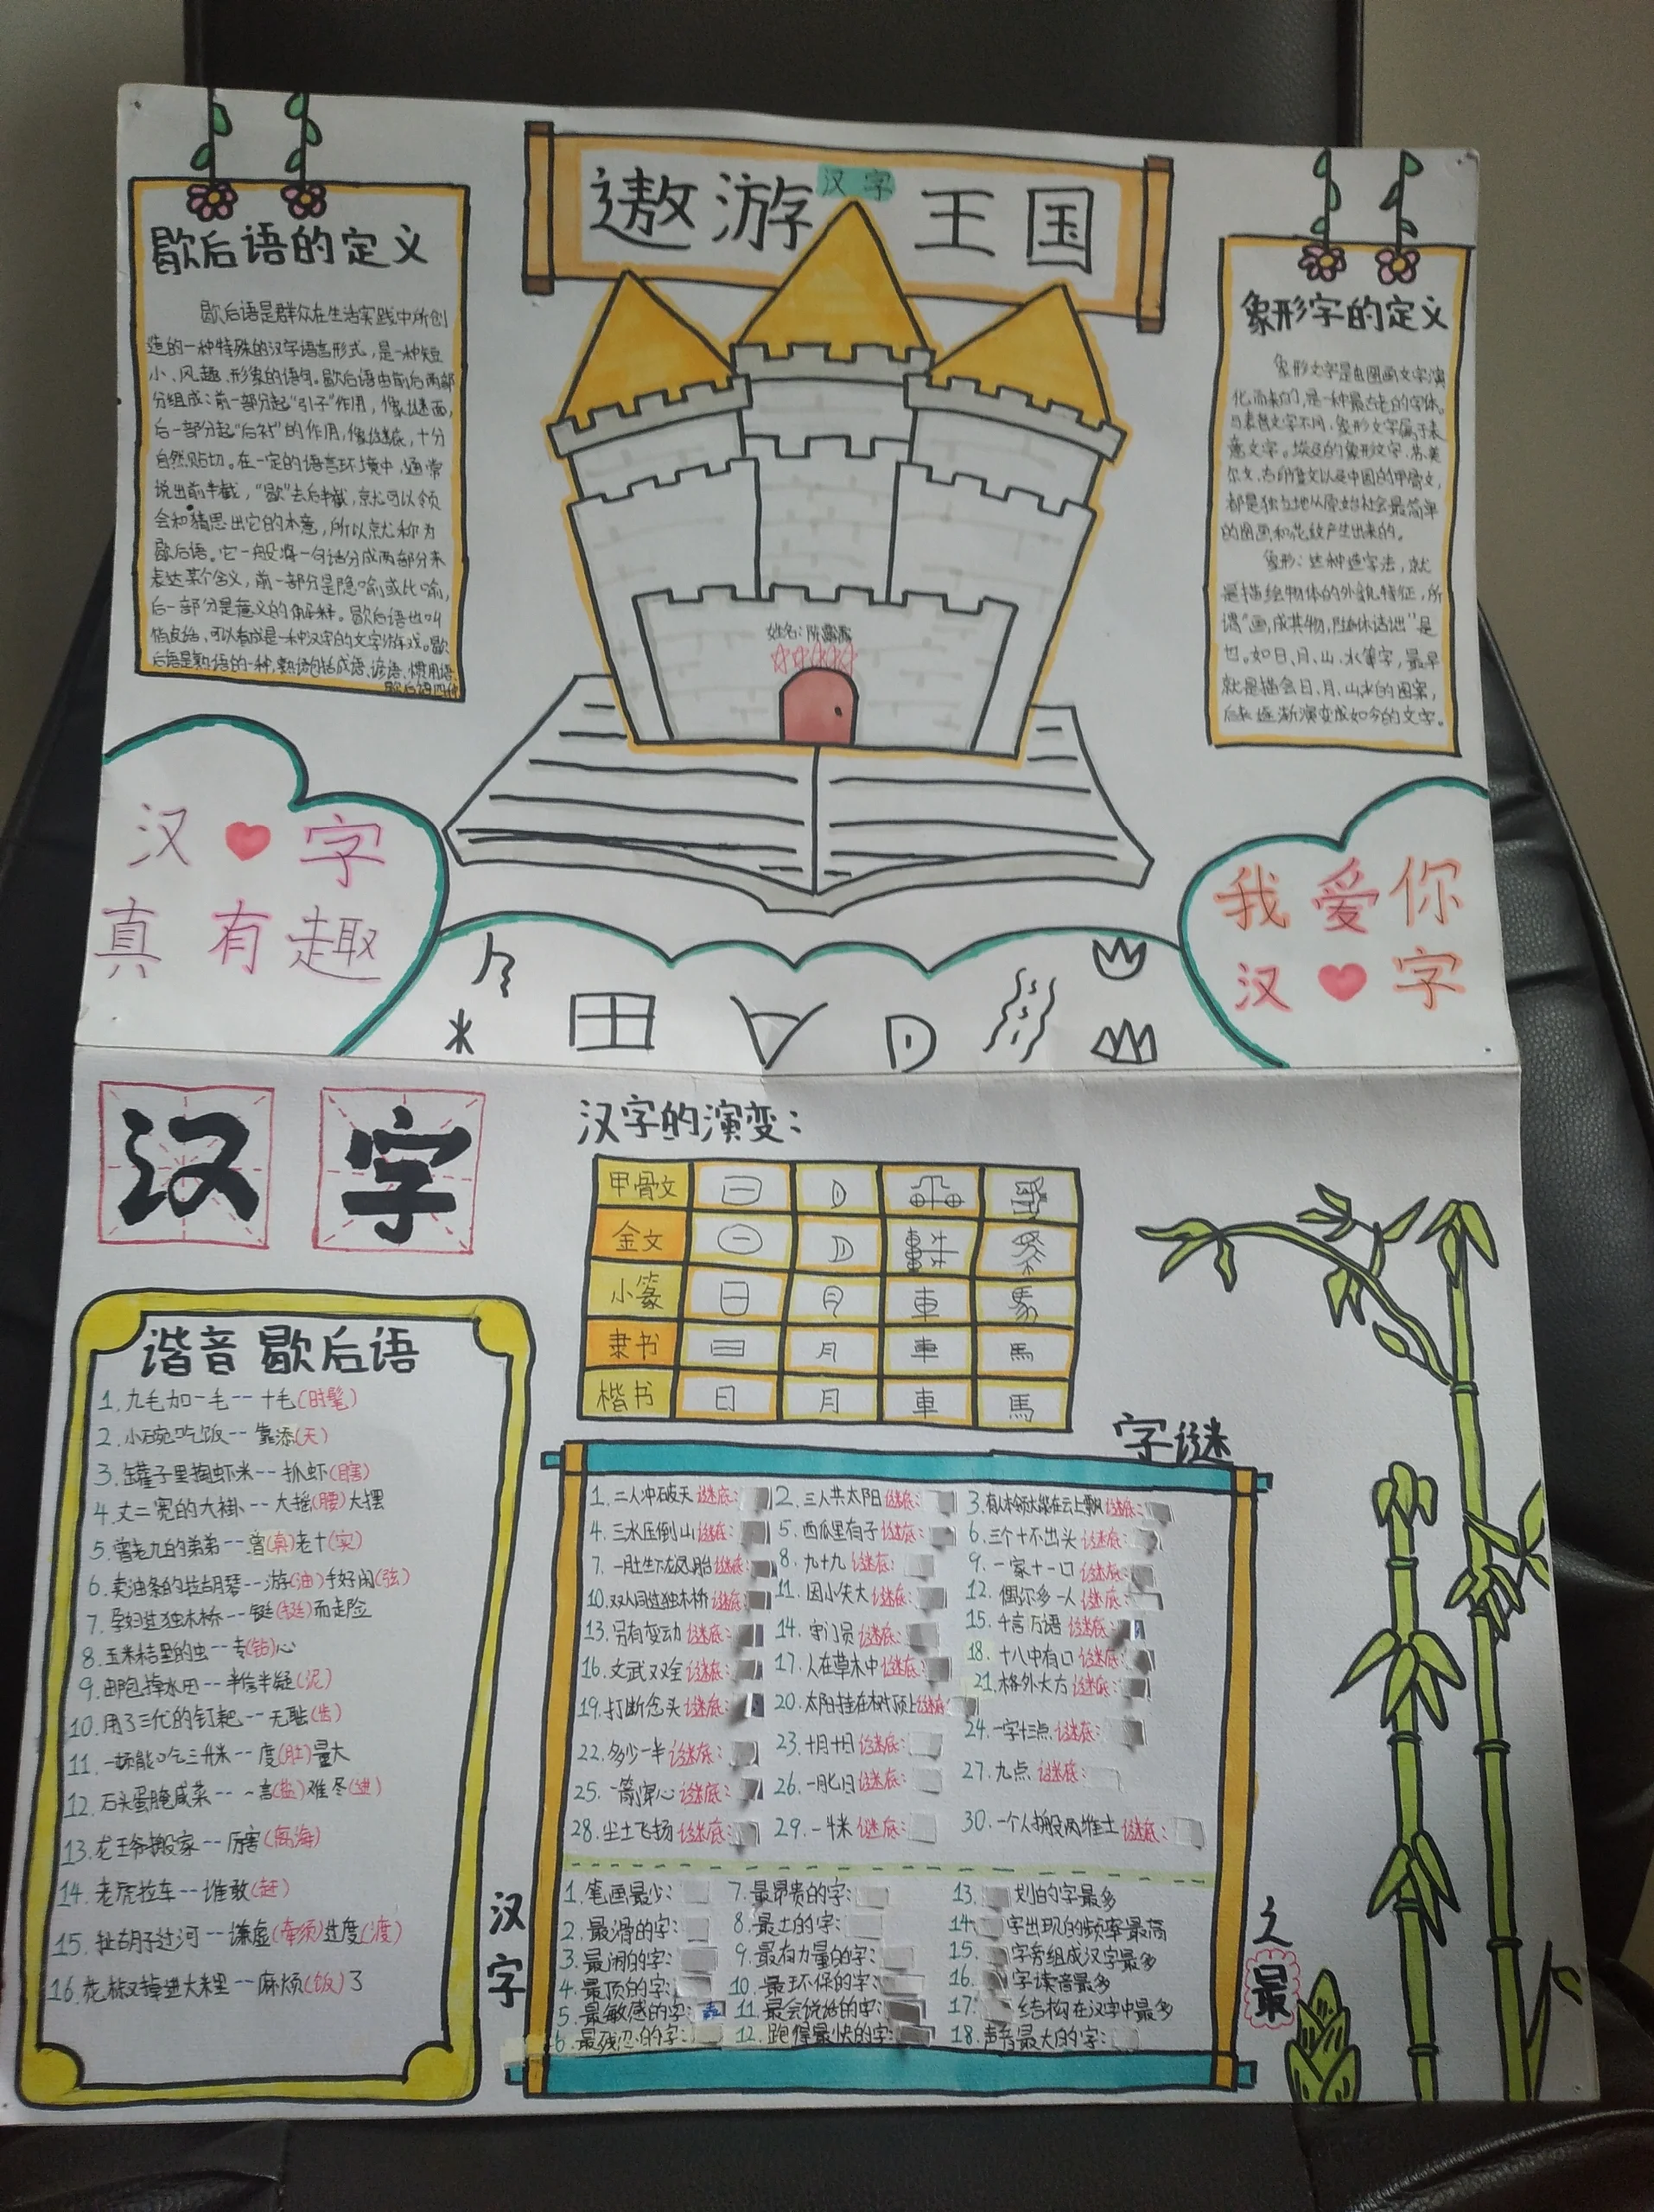 遨游汉字王国
歇后语的定义
歇后语是群众在生活实践中所创
造的一种特殊的汉字语言形式,是一种短
小、风趣、形象的语句。歇后语由前后两部
分组成:前一部分起“引子”作用,像谜面,
后一部分起“后衬”的作用,像谜底,十分
自然贴切。在一定的语言环境中,通常
说出前半截,“歇”去后半截,就可以领
会和猜思出它的本意,所以就称为
歇后语。它一般将一句话分成两部分来
表达某个含义,前一部分是隐喻或比喻,
后一部分是意义的解释。歇后语也叫
俏皮话,可以看成是一种汉字的文字游戏。歇
后语是熟语的一种,熟语包括成语、谚语、惯用语、
歇后语四种
象形字的定义
象形文字是由图画文字演
化而来的,是一种最古老的字体。
与表音文字不同,象形文字属于表
意文字。埃及的象形文字、苏美
尔文、古印度文以及中国的甲骨文,
都是独立地从原始社会最简单
的图画和花纹产生出来的。
象形:这种造字法,就
是描绘物体的外貌特征,所
谓“画成其物,随体诘诎”是
也。如日、月、山、水等字,最早
就是描绘日、月、山水的图案,
后来逐渐演变成如今的文字。
姓名:陈露露
汉字
真有趣
我爱你
汉字
汉字
汉字的演变:
甲骨文
金文
小篆 日 月 車 馬
隶书 日 月 車 馬
楷书 日 月 車 馬
谐音歇后语
1.九毛加一毛--十毛(时髦)
2.小碗吃饭--靠添(天)
3.罐子里掏虾米--抓虾(瞎)
4.丈二宽的大褂--大摇(腰)大摆
5.曾老九的弟弟--曾(真)老十(实)
6.卖油条的拉胡琴--游(油)手好闲(弦)
7.孕妇过独木桥--铤(挺)而走险
8.玉米秸里的虫--专(钻)心
9.邮包掉水田--半信半疑(泥)
10.用了三代的钉耙--无耻(齿)
11.一顿能吃三升米--度(肚)量大
12.石头蛋腌咸菜--一言(盐)难尽(进)
13.龙王爷搬家--厉害(离海)
14.老虎拉车--谁敢(赶)
15.扯胡子过河--谦虚(牵须)过度(渡)
16.花椒掉进大米里--麻烦(饭)了
字谜
1.二人冲破天谜底: 2.三人共太阳谜底: 3.有人本领大能在云上飘谜底:
4.三水压倒山谜底: 5.西瓜里有子谜底: 6.三个十不出头谜底:
7.一肚生下龙凤胎谜底: 8.九十九谜底: 9.一家十一口谜底:
10.双人同过独木桥谜底: 11.因小失大谜底: 12.偶尔多一人谜底:
13.另有变动谜底: 14.守门员谜底: 15.千言万语谜底:
16.文武双全谜底: 17.人在草木中谜底: 18.十八中有口谜底:
19.打断念头谜底: 20.太阳挂在树顶上谜底: 21.格外大方谜底:
22.多少一半谜底: 23.十月十日谜底: 24.一字十三点谜底:
25.一箭穿心谜底: 26.一月七日谜底: 27.九点谜底:
28.尘土飞扬谜底: 29.一斗米谜底: 30.一个人搬两堆土谜底:
汉字之最
1.笔画最少: 7.最昂贵的字: 13. 划的字最多
2.最滑的字: 8.最土的字: 14. 字出现的频率最高
3.最闹的字: 9.最有力量的字: 15. 字旁组成汉字最多
4.最顶的字: 10.最环保的字: 16. 字读音最多
5.最敏感的字: 11.最会说话的字: 17. 结构在汉字中最多
6.最残忍的字: 12.跑得最快的字: 18.声音最大的字: